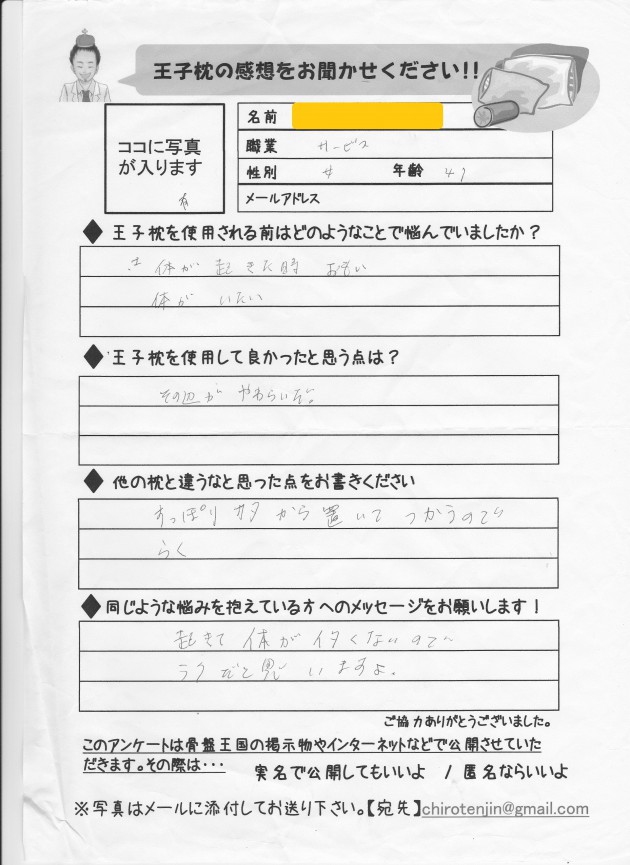 王子枕の感想をお聞かせください!!
ココに写真
が入ります
名前
職業 サービス
性別 女 年齢 47
メールアドレス
◆王子枕を使用される前はどのようなことで悩んでいましたか?
体が 起きた時 おもい
体が いたい
◆王子枕を使用して良かったと思う点は?
その辺が やわらいだ。
◆他の枕と違うなと思った点をお書きください
すっぽり カタ から 置いて つかうので
らく
◆同じような悩みを抱えている方へのメッセージをお願いします!
起きて 体が イタくないので
ラクだと思いますよ。
ご協力ありがとうございました。
このアンケートは骨盤王国の掲示物やインターネットなどで公開させていた
だきます。その際は・・・ 実名で公開してもいいよ / 匿名ならいいよ
※写真はメールに添付してお送り下さい。【宛先】chirotenjin@gmail.com